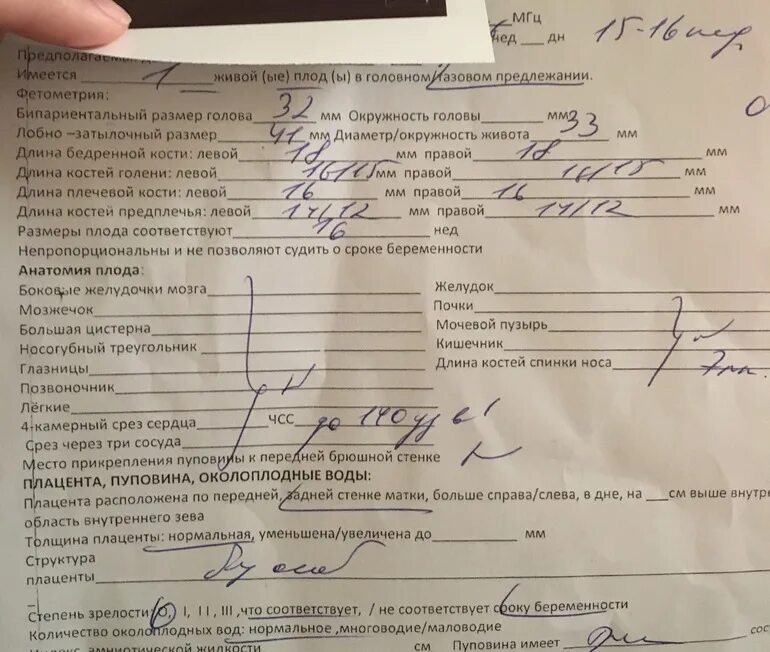 МГц
нед ___ дн 15-16 нед
Предполагаем
Имеется 1 живой (ые) плод (ы) в головном/тазовом предлежании.
Фетометрия:
Бипариентальный размер голова 32 мм Окружность головы ___ мм
Лобно –затылочный размер 41 мм Диаметр/окружность живота 33 мм
Длина бедренной кости: левой 18 мм правой 18 мм
Длина костей голени: левой 16/15 мм правой 16/15 мм
Длина плечевой кости: левой 16 мм правой 16 мм
Длина костей предплечья: левой 14/12 мм правой 14/12 мм
Размеры плода соответствуют 16 нед
Непропорциональны и не позволяют судить о сроке беременности
Анатомия плода:
Боковые желудочки мозга
Мозжечок
Большая цистерна
Носогубный треугольник
Глазницы
Позвоночник N
Лёгкие
4-камерный срез сердца ЧСС до 140 уд в 1
Срез через три сосуда
Желудок
Почки
Мочевой пузырь N
Кишечник
Длина костей спинки носа 7мм.
Место прикрепления пуповины к передней брюшной стенке N
ПЛАЦЕНТА, ПУПОВИНА, ОКОЛОПЛОДНЫЕ ВОДЫ:
Плацента расположена по передней, задней стенке матки, больше справа/слева, в дне, на ___см выше внутре
область внутреннего зева
Толщина плаценты: нормальная, уменьшена/увеличена до ___ мм
Структура
плаценты
Степень зрелости: 0, I, II, III ,что соответствует, / не соответствует сроку беременности
Количество околоплодных вод: нормальное ,многоводие/маловодие
Индекс амниотической жидкости ___ см Пуповина имеет сос